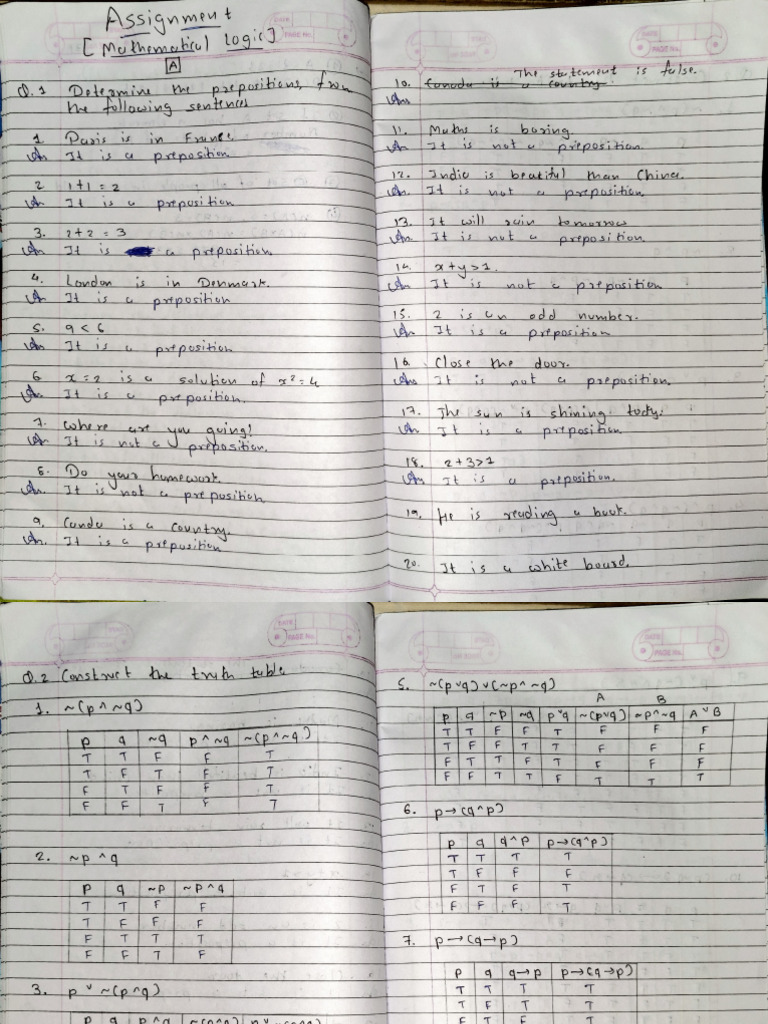 Assignment
[Mathematical logic]
A
Q.1 Determine the prepositions from
the following sentences
1 Paris is in France.
An It is a preposition
2 1+1=2
An It is a preposition
3. 2+2=3
An It is a preposition
4. London is in Denmark.
An It is a preposition
5. 9<6
An It is a preposition
6 x=2 is a solution of x²=4
An. It is a preposition.
7. Where are you going!
An It is not a preposition.
8. Do your homework.
An. It is not a preposition
9. Canda is a country.
An. It is a preposition
DATE
PAGE No.
10. Canada is a country The statement is false.
An
11. Maths is boring
An It is not a preposition
12. India is beatiful than China.
An. It is not a preposition.
13. It will rain tomorrow
An It is not a preposition,
14. x+y>1.
An It is not a preposition
15. 2 is an odd number.
An It is a preposition
16. Close the door.
An. It is not a preposition.
17. The sun is shining tody.
An. It is a preposition.
18. 2+3>1
An It is a preposition.
19. He is reading a book.
20. It is a white board.
DATE
PAGE No.
Q.2 Construct the truth table
1. ~(p^~q)
p q ~q p^~q ~(p^~q)
T T F F T
T F T F T
F T F F T
F F T F T
2. ~p ^ q
p q ~p ~p^q
T T F F
T F F F
F T T T
F F T F
3. p ᵛ ~(p^q)
p q p^q ~(p^q) pᵛ~(p^q)
DATE
PAGE No.
5. ~(pvq)v(~p^~q)
A B
p q ~p ~q pᵛq ~(pvq) ~p^~q AᵛB
T T F F T F F F
T F F T T F F F
F T T F T F F F
F F T T F T T T
6. p→(q^p)
p q q^p p→(q^p)
T T T T
T F F F
F T F T
F F F T
7. p→(q→p)
p q q→p p→(q→p)
T T T T
T F T T
F T F T